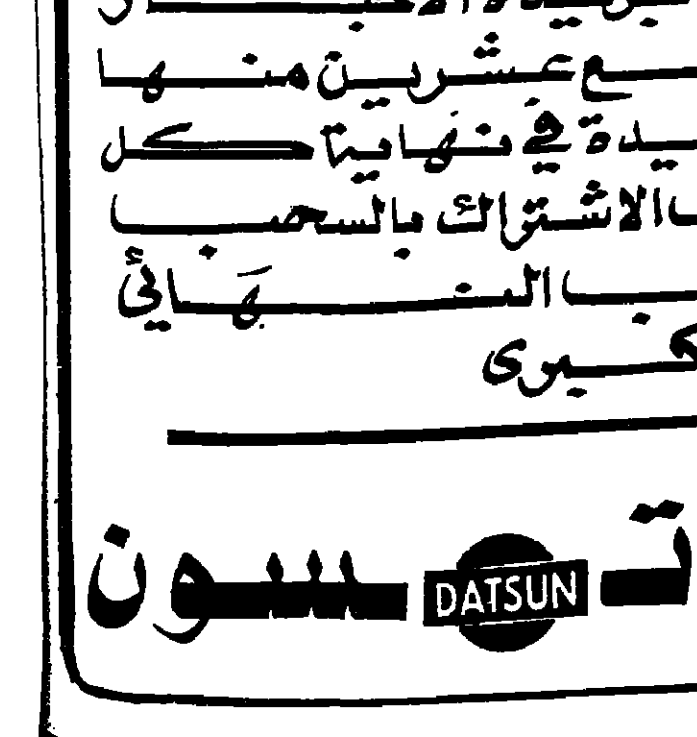 ـع عشرين منها
ـيدة في نهاية كل
ـب الاشتراك بالسحب
ـب النهائي
كبرى
تـسون
DATSUN